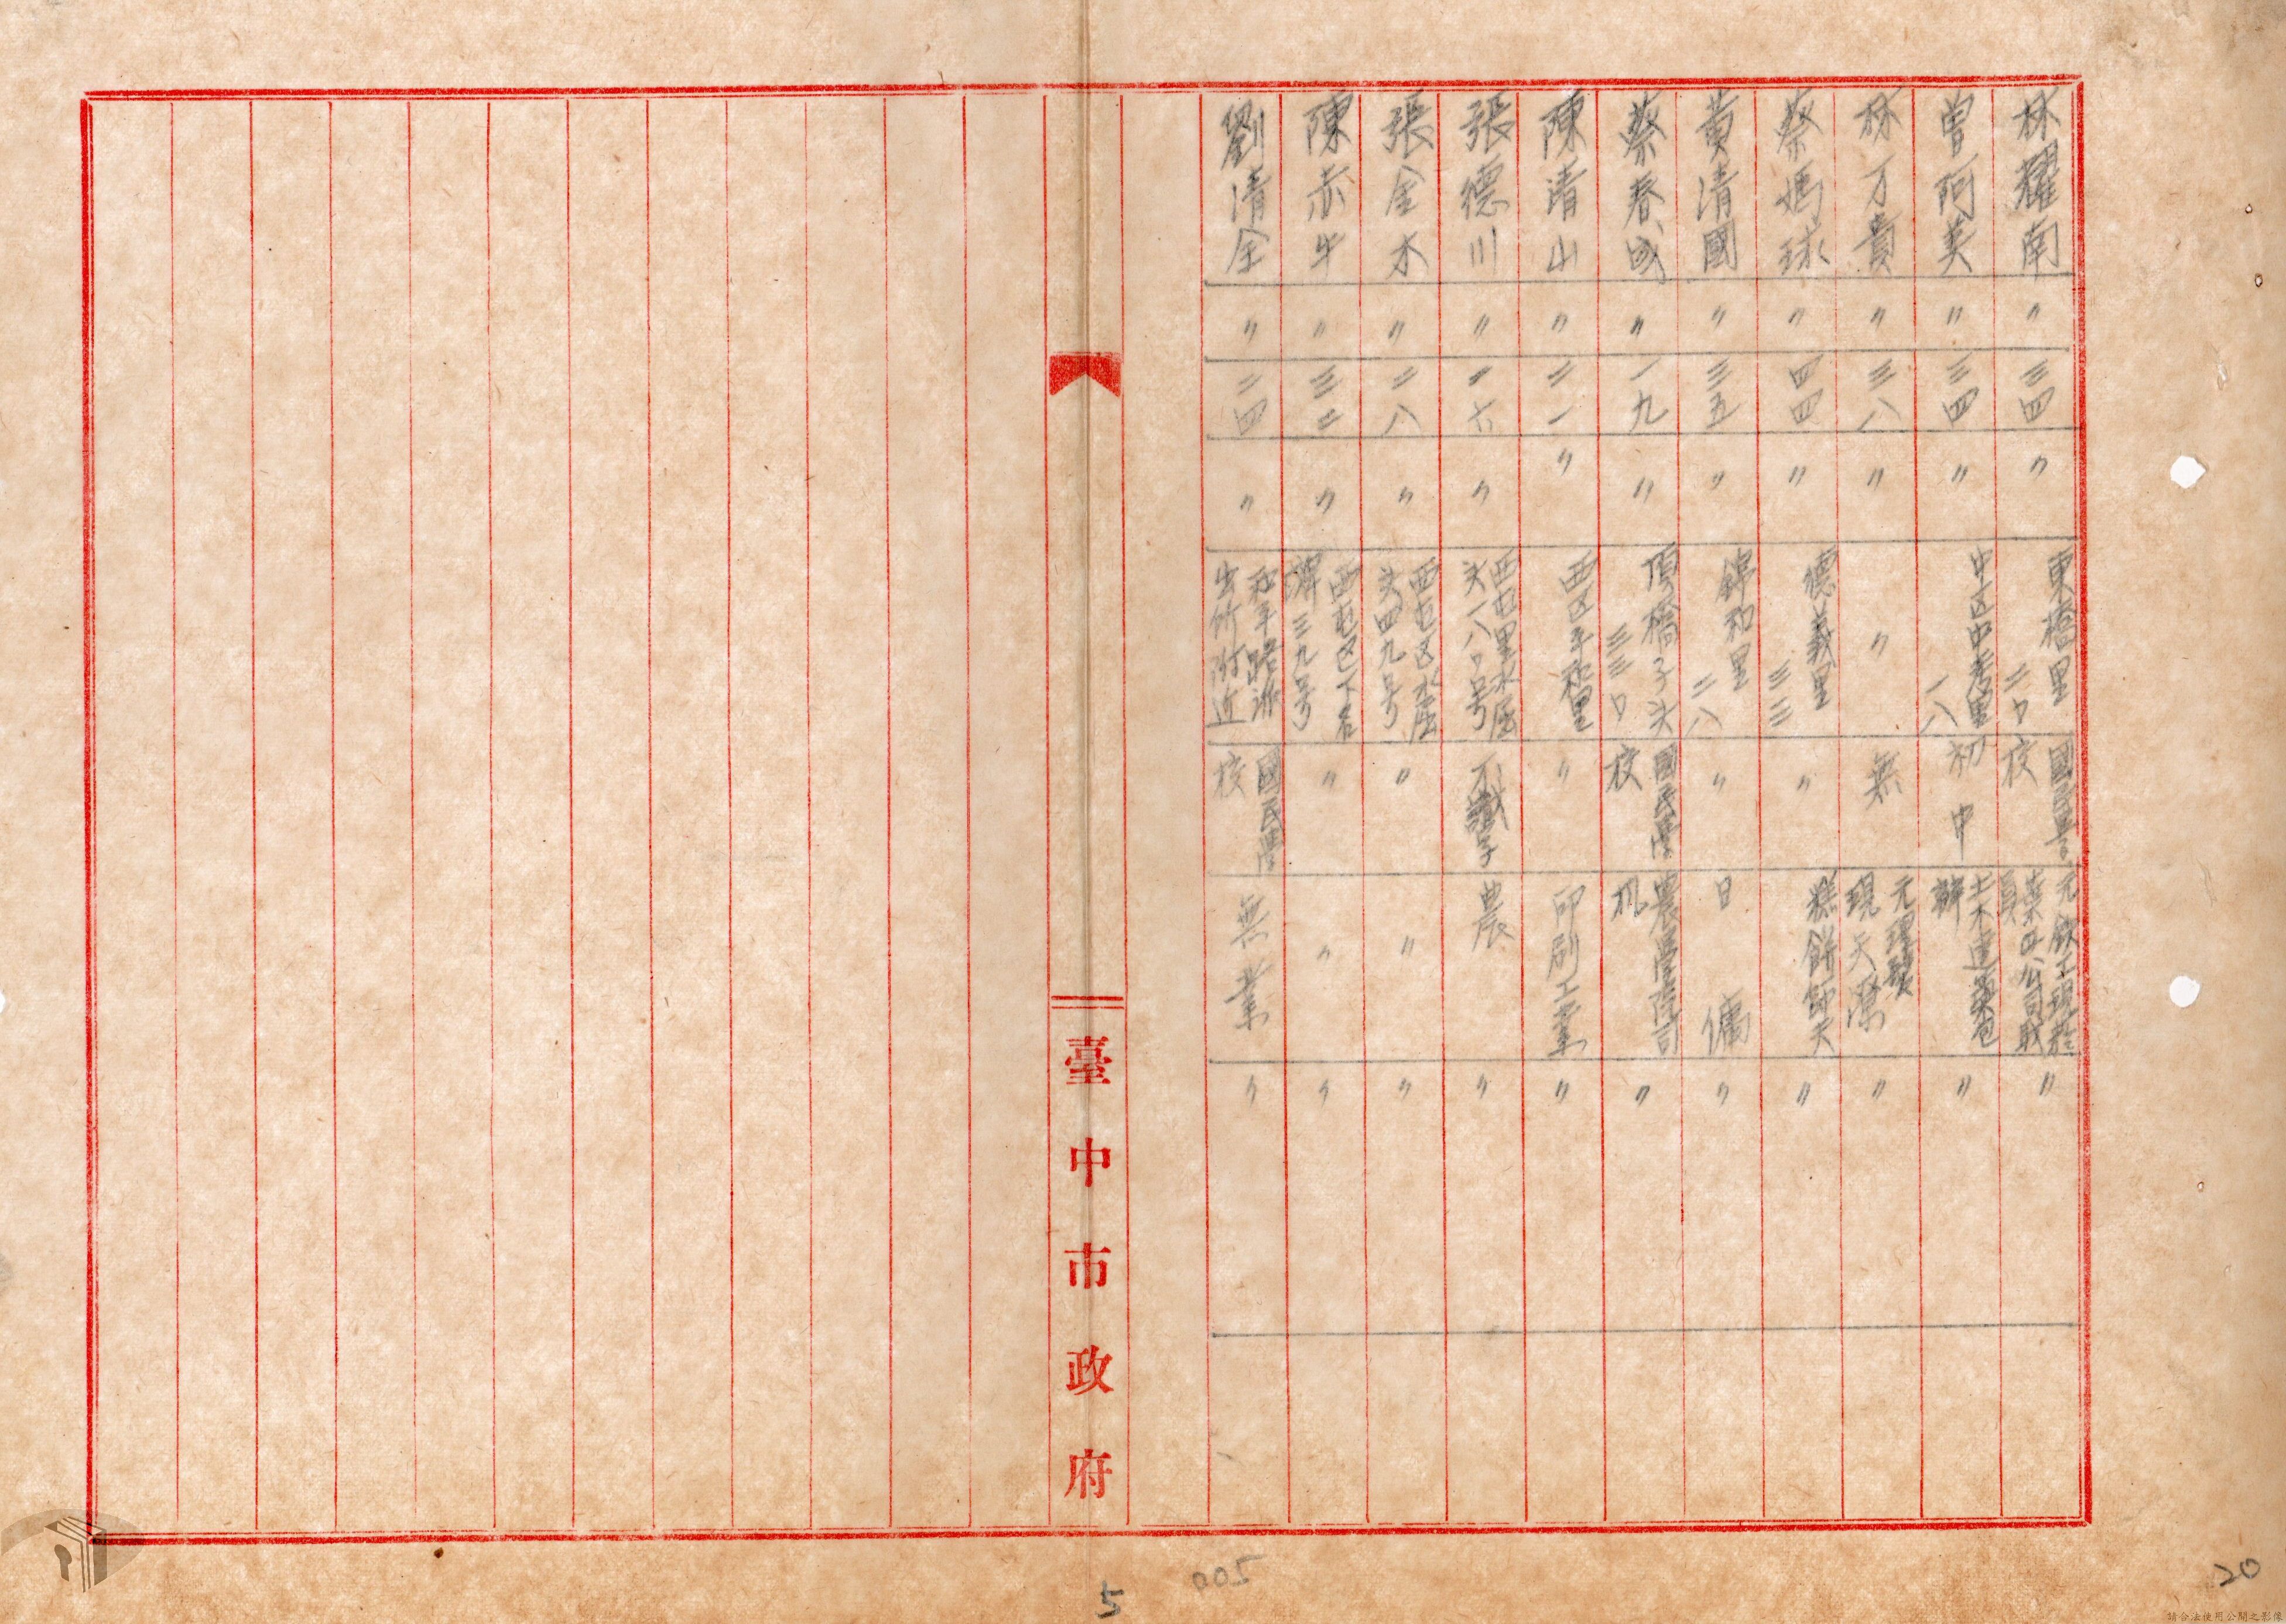 林耀南 〃 三四 〃 東橋里二〇 國民學校 〃
曾阿美 〃 三四 〃 中区中孝里一八 初中 土木建築包辦 〃
林万貴 〃 三八 〃 〃 無 元理髮現天潭 〃
蔡媽球 〃 四四 〃 德義里三三 〃 糕餅師夫 〃
黄清國 〃 三五 〃 錦和里二八 〃 日傭 〃
蔡春成 〃 一九 〃 頂橋子头三三〇 國民學校 農學院司机 〃
陳清山 〃 二一 〃 西区平和里 〃 印刷工業 〃
張德川 〃 二六 〃 西屯里水堀头一八〇号 不識字 農 〃
張金木 〃 二八 〃 西屯区水堀头四九号 〃 〃 〃
陳赤牛 〃 三二 〃 西屯区下石碑三九号 〃 〃 〃
劉清全 〃 二四 〃 和平路派出所附近 國民學校 無業 〃
臺中市政府
5
005
20
請合法使用公開之影像